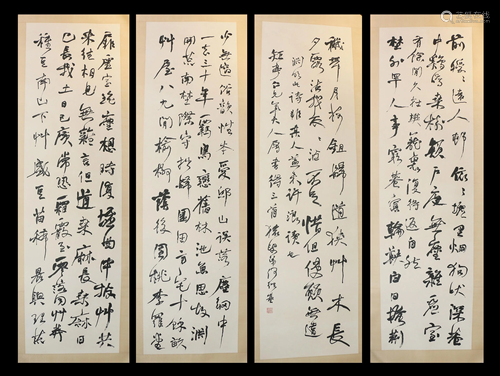 少無適俗韻性本愛邱山誤落塵網中
一去三十年羈鳥戀舊林池魚思故淵
開荒南野際守拙歸園田方宅十餘畝
艸屋八九間榆柳蔭後園桃李羅堂
前曖曖遠人邨依依墟里烟狗吠深巷
中鷄鳴桑樹顛戶庭無塵雜虛室
有餘閒久在樊籠裏復得返自然
野外罕人事窮巷寡輪鞅白日掩荊
扉虛室絕塵想時復墟曲中披艸共
來往相見無雜言但道桑麻長桑麻日
已長我土日已廣常恐霜霰至零落同艸莽
種豆南山下艸盛豆苗稀晨興理荒
穢帶月荷鋤歸道狹艸木長
夕露沾我衣衣沾不足惜但使願無違